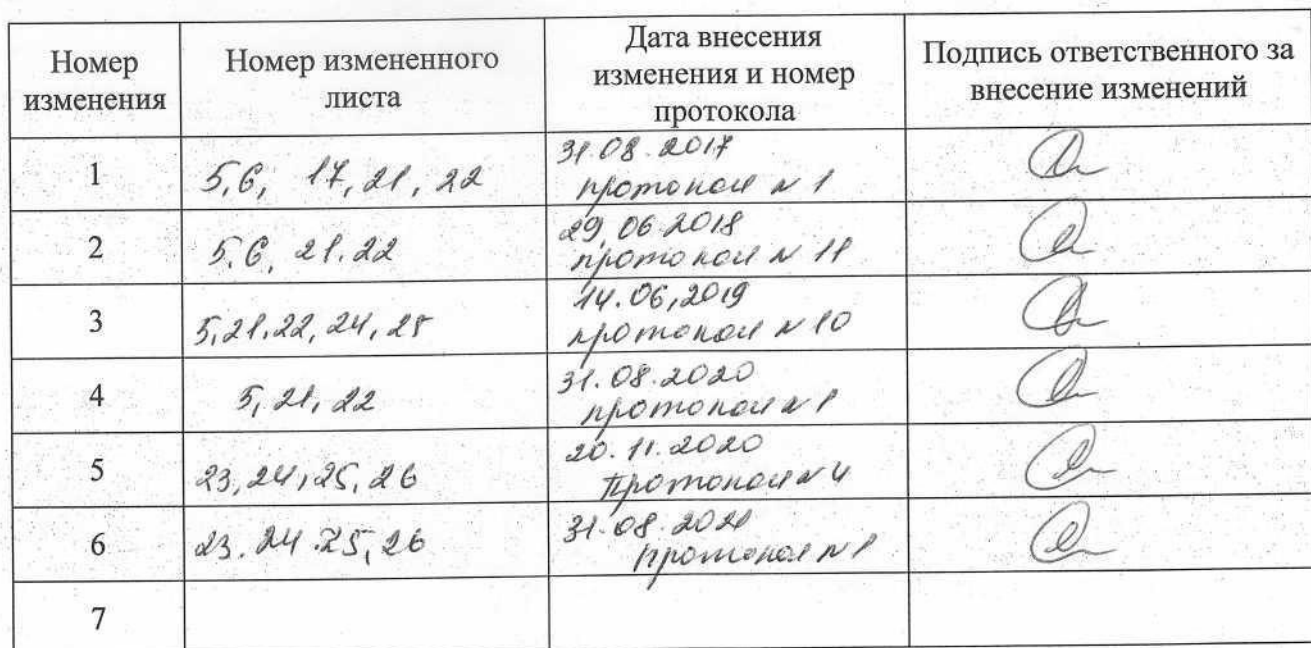 Номер изменения
Номер измененного листа
Дата внесения изменения и номер протокола
Подпись ответственного за внесение изменений
1
5,6, 17,21,22
31.08.2017
протокол №1
2
5,6,21.22
29,06.2018
протокол №11
3
5,21,22,24,25
14.06,2019
протокол №10
4
5,21,22
31.08.2020
протокол №1
5
23,24,25,26
20.11.2020
Протокол №4
6
23.24.25,26
31.08.2021
протокол №1
7